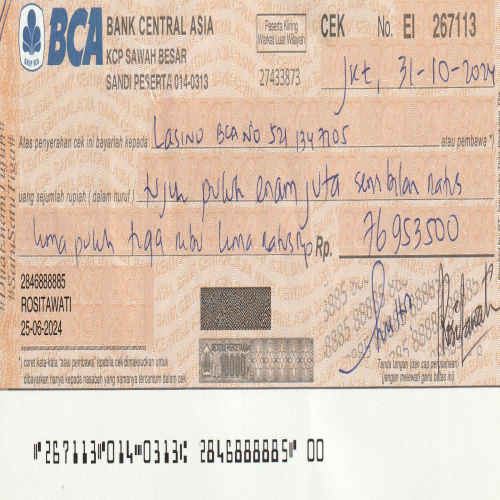 BCA BANK CENTRAL ASIA
KCP SAWAH BESAR
SANDI PESERTA 014-0313
Peserta Kliring
Warkat Luar Wilayah
27433873
CEK No. EI 267113
Jkt, 31-10-2024
Atas penyerahan cek ini bayarlah kepada Lasino BCA NO 521 1347205 atau pembawa *)
uang sejumlah rupiah ( dalam huruf ) tujuh puluh enam juta sembilan ratus
lima puluh tiga ribu lima ratus rp Rp. 76953500
2846888885
ROSITAWATI
25-06-2024
*) coret kata-kata "atau pembawa" apabila cek dimaksudkan untuk
dibayarkan hanya kepada nasabah yang namanya tercantum dalam cek
Tanda tangan (dan cap perusahaan)
(jangan melewati garis batas ini)
⑈267113⑈014⑉0313⑆ 2846888885⑈ 00